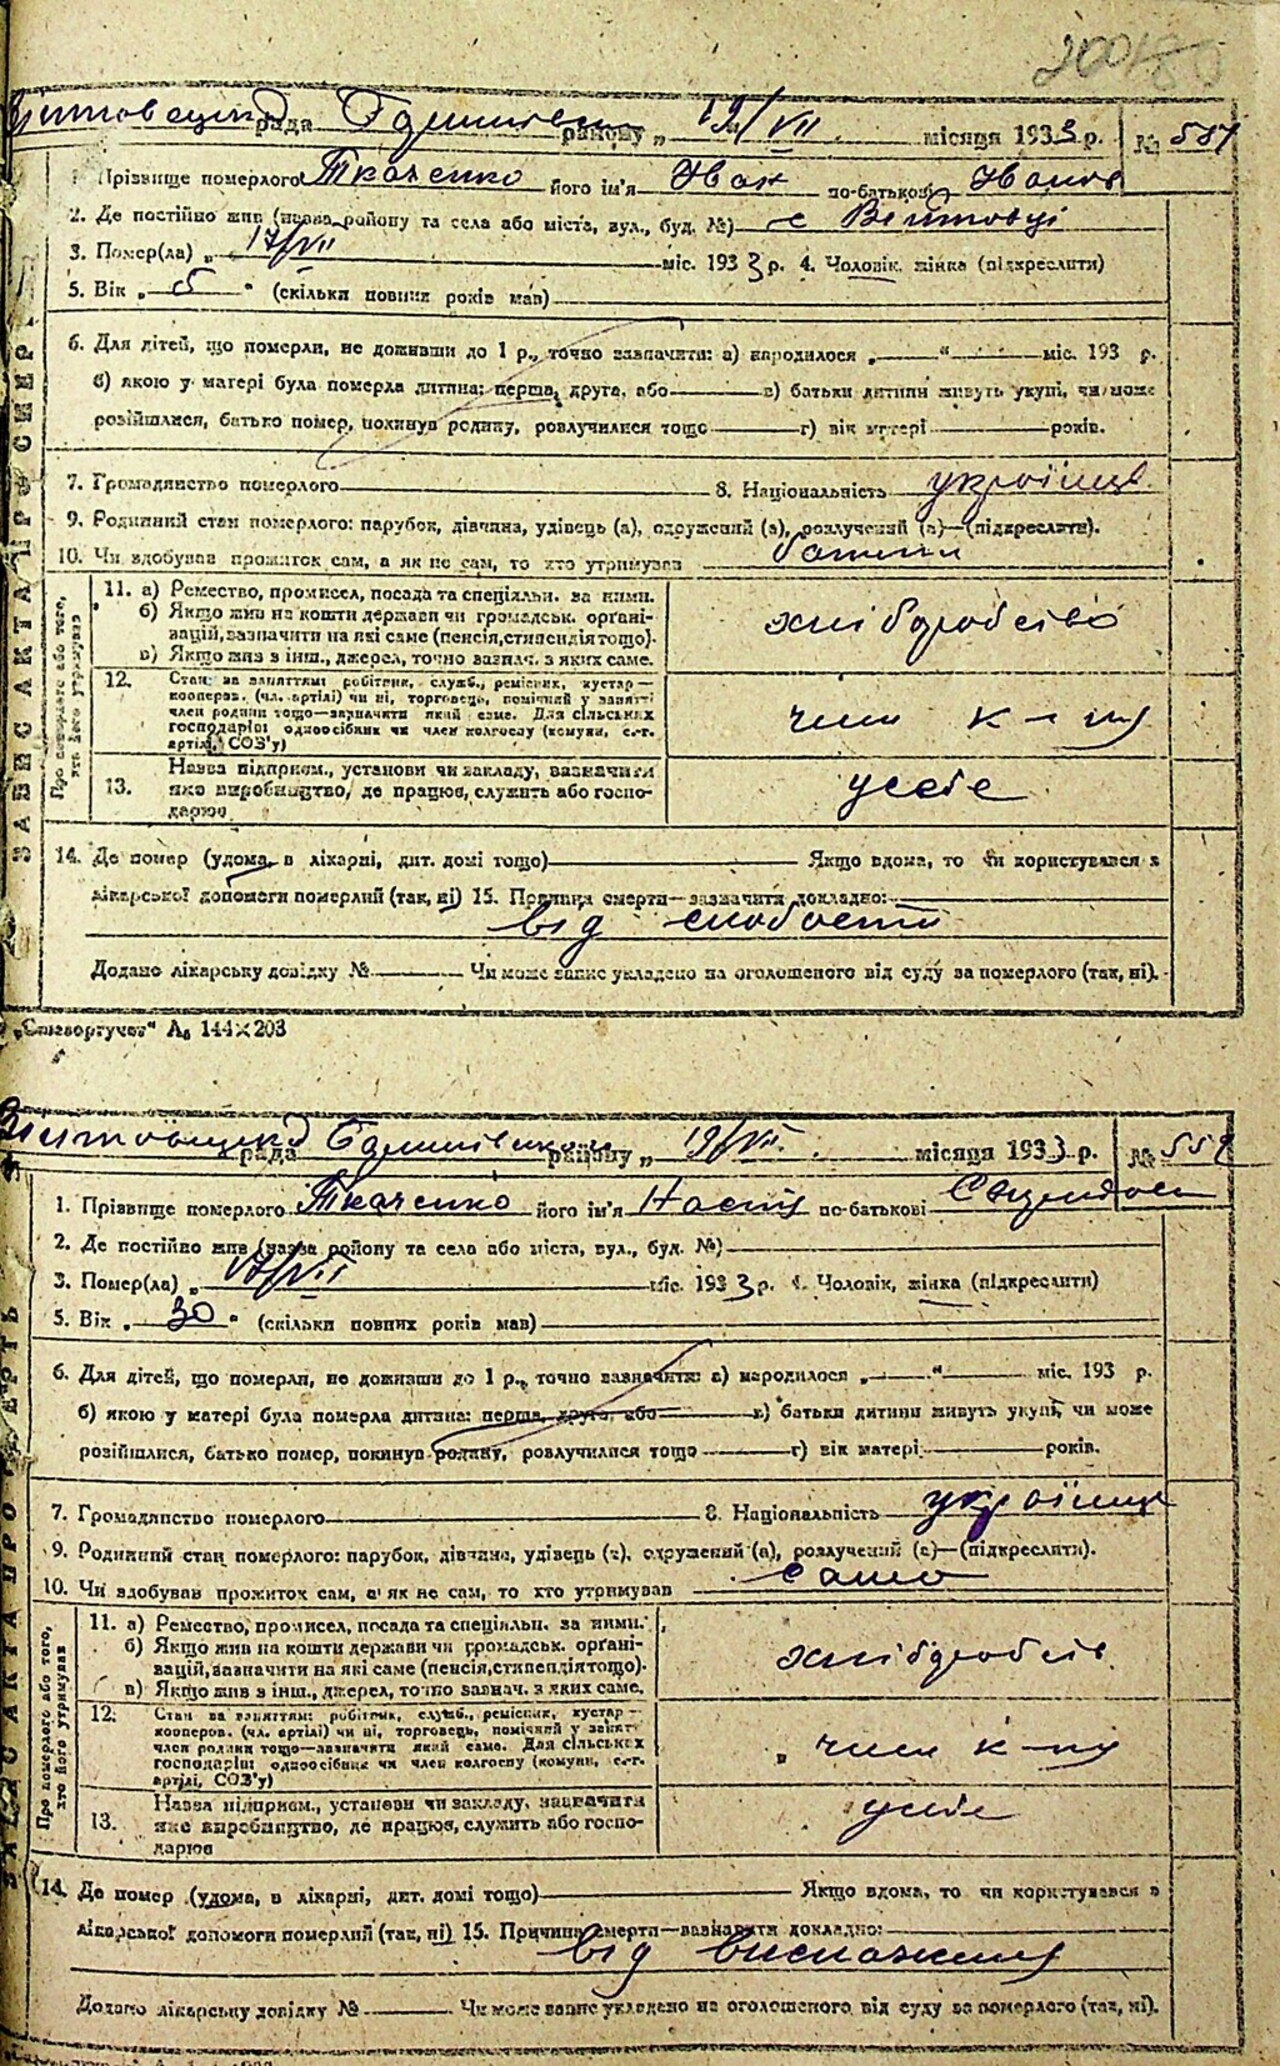 рада району „ 19/VII місяця 1933 р. №
1 Прізвище померлого Ткаченко його ім'я Іван по-батькові Іванов
2. Де постійно жив (назва району та села або міста, вул., буд. №) с Війтовці
3. Помер(ла) „ 17/VII міс. 1933 р. 4. Чоловік, жінка (підкреслити)
5. Вік „ 5 “ (скільки повних років мав)
6. Для дітей, що померли, не доживши до 1 р., точно зазначити: а) народилося „ “ міс. 193 р.
б) якою у матері була померла дитина: перша, друга, або в) батьки дитини живуть укупі, чи може
розійшлися, батько помер, покинув родину, розлучилися тощо г) вік матері років.
7. Громадянство померлого 8. Національність українц
9. Родинний стан померлого: парубок, дівчина, удівець (а), одружений (а), розлучений (а)—(підкреслити).
10. Чи здобував прожиток сам, а як не сам, то хто утримував батьки
ЗАПИС АКТА ПРО СМЕРТЬ
Про померлого або того, хто його утримував
11. а) Ремество, промисел, посада та спеціяльн. за ними.
б) Якщо жив на кошти держави чи громадськ. орґані-
зацій, зазначити на які саме (пенсія, стипендія тощо).
в) Якщо жив з інш., джерел, точно зазнач. з яких саме.
хліборобство
12. Стан за заняттям: робітник, служб., ремісник, кустар—
кооперов. (чл. артілі) чи ні, торговець, помічний у занятті
член родини тощо—зазначити який саме. Для сільських
господарів: одноосібник чи член колгоспу (комуни, с.-г.
артілі, СОЗ'у)
член к-пу
13. Назва підприєм., установи чи закладу, зазначити
яке виробництво, де працює, служить або госпо-
дарює
у себе
14. Де помер (удома, в лікарні, дит. домі тощо) Якщо вдома, то чи користувався з
лікарської допомоги померлий (так, ні) 15. Причина смерти—зазначити докладно:
від слабости
Додано лікарську довідку № Чи може запис укладено на оголошеного від суду за померлого (так, ні).
А₆ 144×203
рада району „ 19/VII. місяця 1933 р. № 559
1. Прізвище померлого Ткаченко його ім'я Настя по-батькові
2. Де постійно жив (назва району та села або міста, вул., буд. №)
3. Помер(ла) „ 17/VII міс. 1933 р. 4. Чоловік, жінка (підкреслити)
5. Вік „ 30 “ (скільки повних років мав)
6. Для дітей, що померли, не доживши до 1 р., точно зазначити: а) народилося „ “ міс. 193 р.
б) якою у матері була померла дитина: перша, друга, або в) батьки дитини живуть укупі, чи може
розійшлися, батько помер, покинув родину, розлучилися тощо г) вік матері років.
7. Громадянство померлого 8. Національність українц
9. Родинний стан померлого: парубок, дівчина, удівець (а), одружений (а), розлучений (а)—(підкреслити).
10. Чи здобував прожиток сам, а як не сам, то хто утримував сама
ЗАПИС АКТА ПРО СМЕРТЬ
Про померлого або того, хто його утримував
11. а) Ремество, промисел, посада та спеціяльн. за ними.
б) Якщо жив на кошти держави чи громадськ. орґані-
зацій, зазначити на які саме (пенсія, стипендія тощо).
в) Якщо жив з інш., джерел, точно зазнач. з яких саме.
хліборобств
12. Стан за заняттям: робітник, служб., ремісник, кустар—
кооперов. (чл. артілі) чи ні, торговець, помічний у занятті
член родини тощо—зазначити який саме. Для сільських
господарів: одноосібник чи член колгоспу (комуни, с.-г.
артілі, СОЗ'у)
член к-пу
13. Назва підприєм., установи чи закладу, зазначити
яке виробництво, де працює, служить або госпо-
дарює
у себе
14. Де помер (удома, в лікарні, дит. домі тощо) Якщо вдома, то чи користувався з
лікарської допомоги померлий (так, ні) 15. Причина смерти—зазначити докладно:
від виснаження
Додано лікарську довідку № Чи може запис укладено на оголошеного від суду за померлого (так, ні).